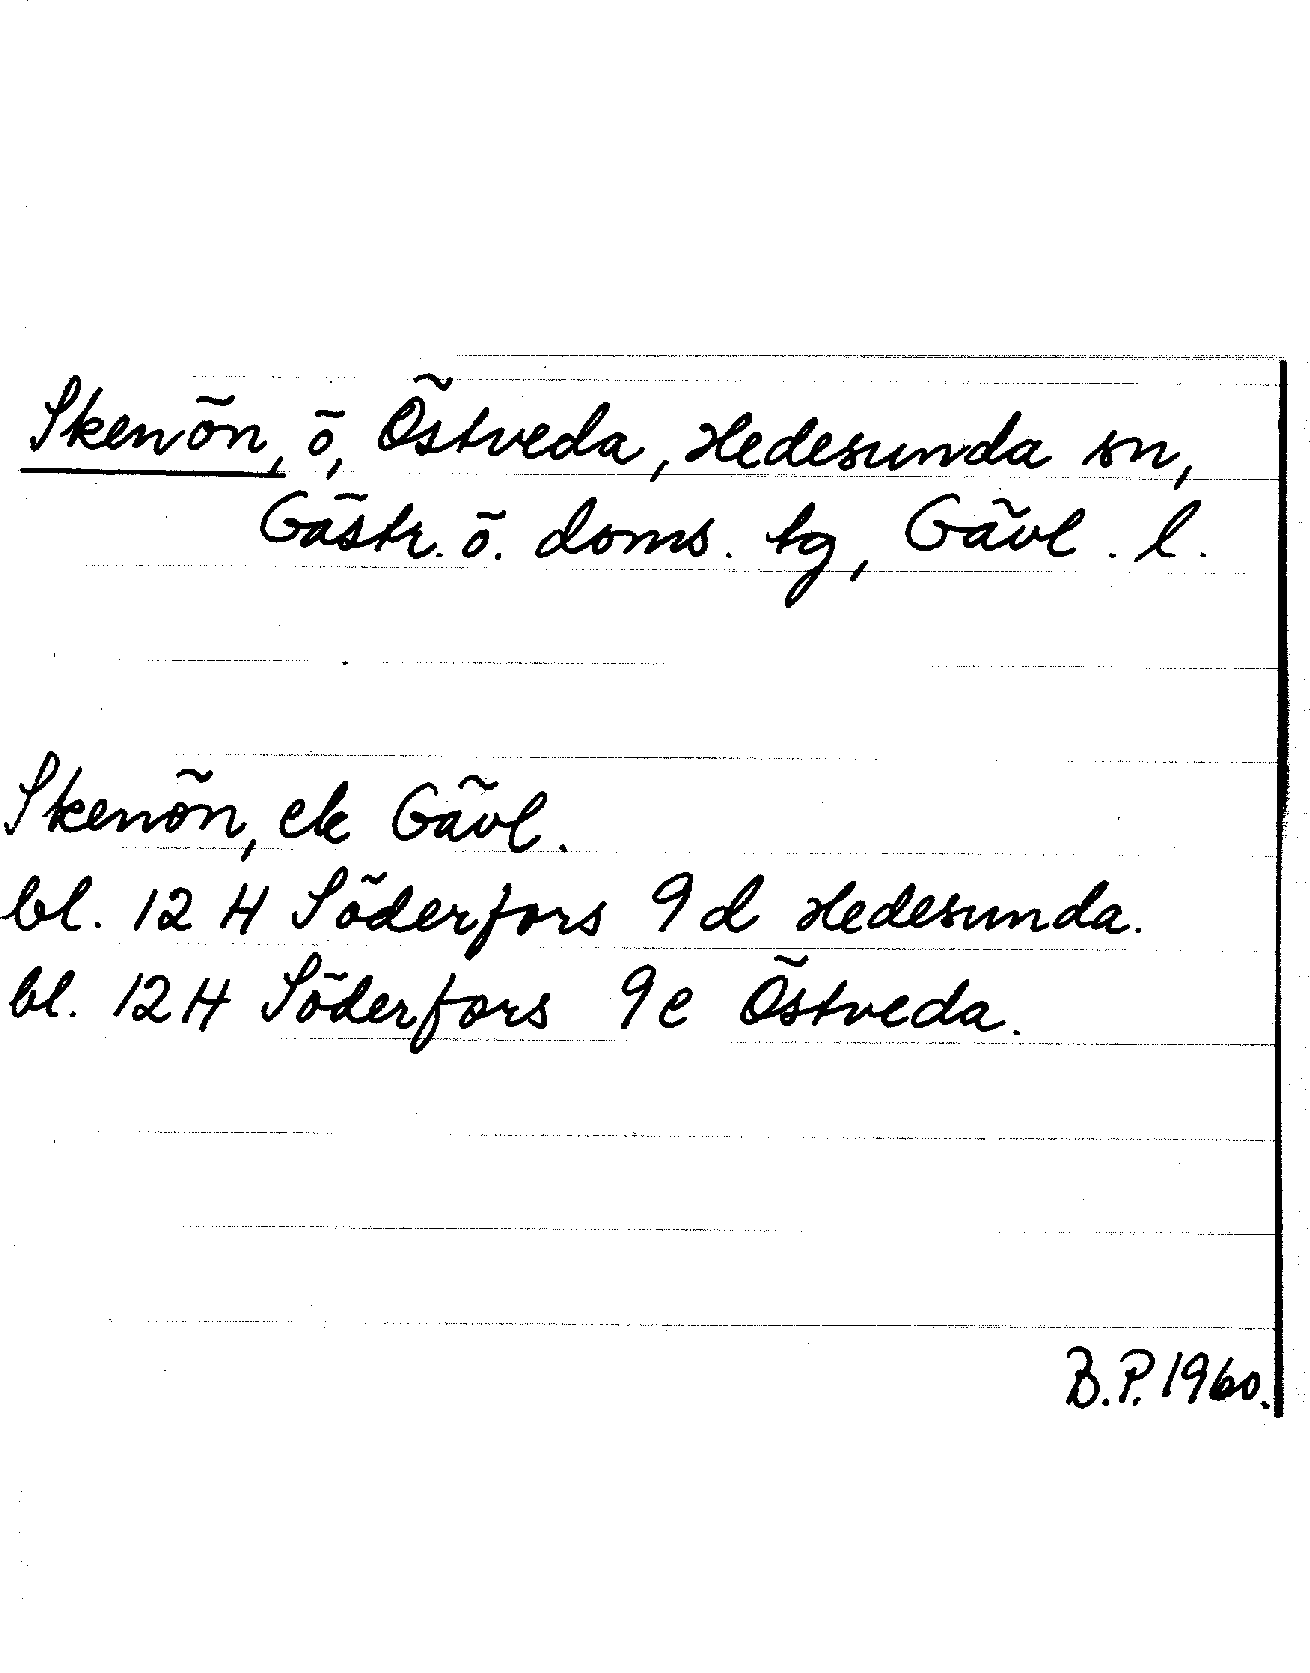 Skenön, ö, Östveda, Hedesunda sn,
Gästr. ö. doms. tg, Gävl. l.
Skenön, ek Gävl.
bl. 12 H Söderfors 9 d Hedesunda.
bl. 12 H Söderfors 9 e Östveda.
B.P. 1960.